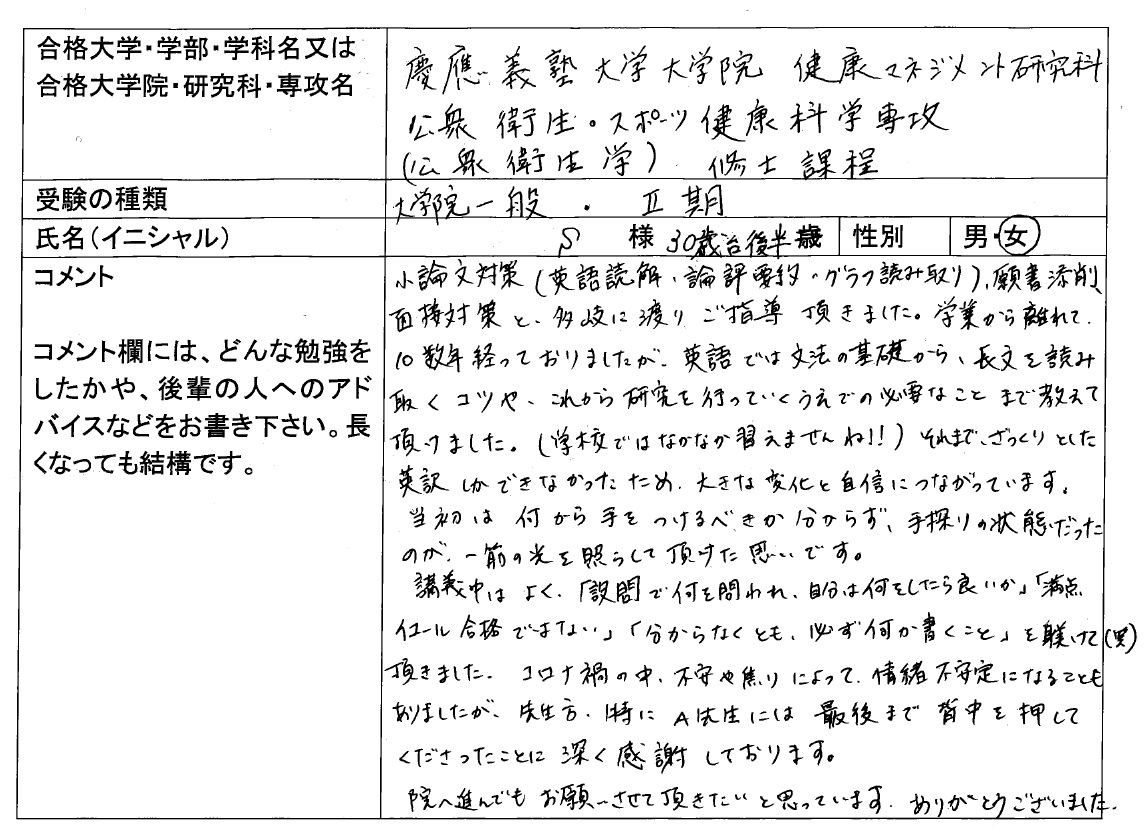 合格大学・学部・学科名又は
合格大学院・研究科・専攻名
慶應義塾大学大学院 健康マネジメント研究科
公衆衛生・スポーツ健康科学専攻
(公衆衛生学) 修士課程
受験の種類
大学院一般・Ⅱ期
氏名(イニシャル)
S 様 30歳台後半歳
性別
男・女
コメント
コメント欄には、どんな勉強を
したかや、後輩の人へのアド
バイスなどをお書き下さい。長
くなっても結構です。
小論文対策(英語読解・論評要約・グラフ読み取り)、願書添削、
面接対策と、多岐に渡りご指導頂きました。学業から離れて、
10数年経っておりましたが、英語では文法の基礎から、長文を読み
取くコツや、これから研究を行っていくうえでの必要なことまで教えて
頂けました。(学校ではなかなか習えませんね!!)それまで、ざっくりとした
英訳しかできなかったため、大きな変化と自信につながっています。
当初は何から手をつけるべきか分からず、手探りの状態だった
のが、一筋の光を照らして頂けた思いです。
講義中はよく、「設問で何を問われ、自分は何をしたら良いか」「満点
イコール合格ではない」「分からなくとも、必ず何か書くこと」を躾けて(笑)
頂きました。コロナ禍の中、不安や焦りによって、情緒不安定になることも
ありましたが、先生方、特にA先生には最後まで背中を押して
くださったことに深く感謝しております。
院へ進んでもお願いさせて頂きたいと思っています。ありがとうございました。